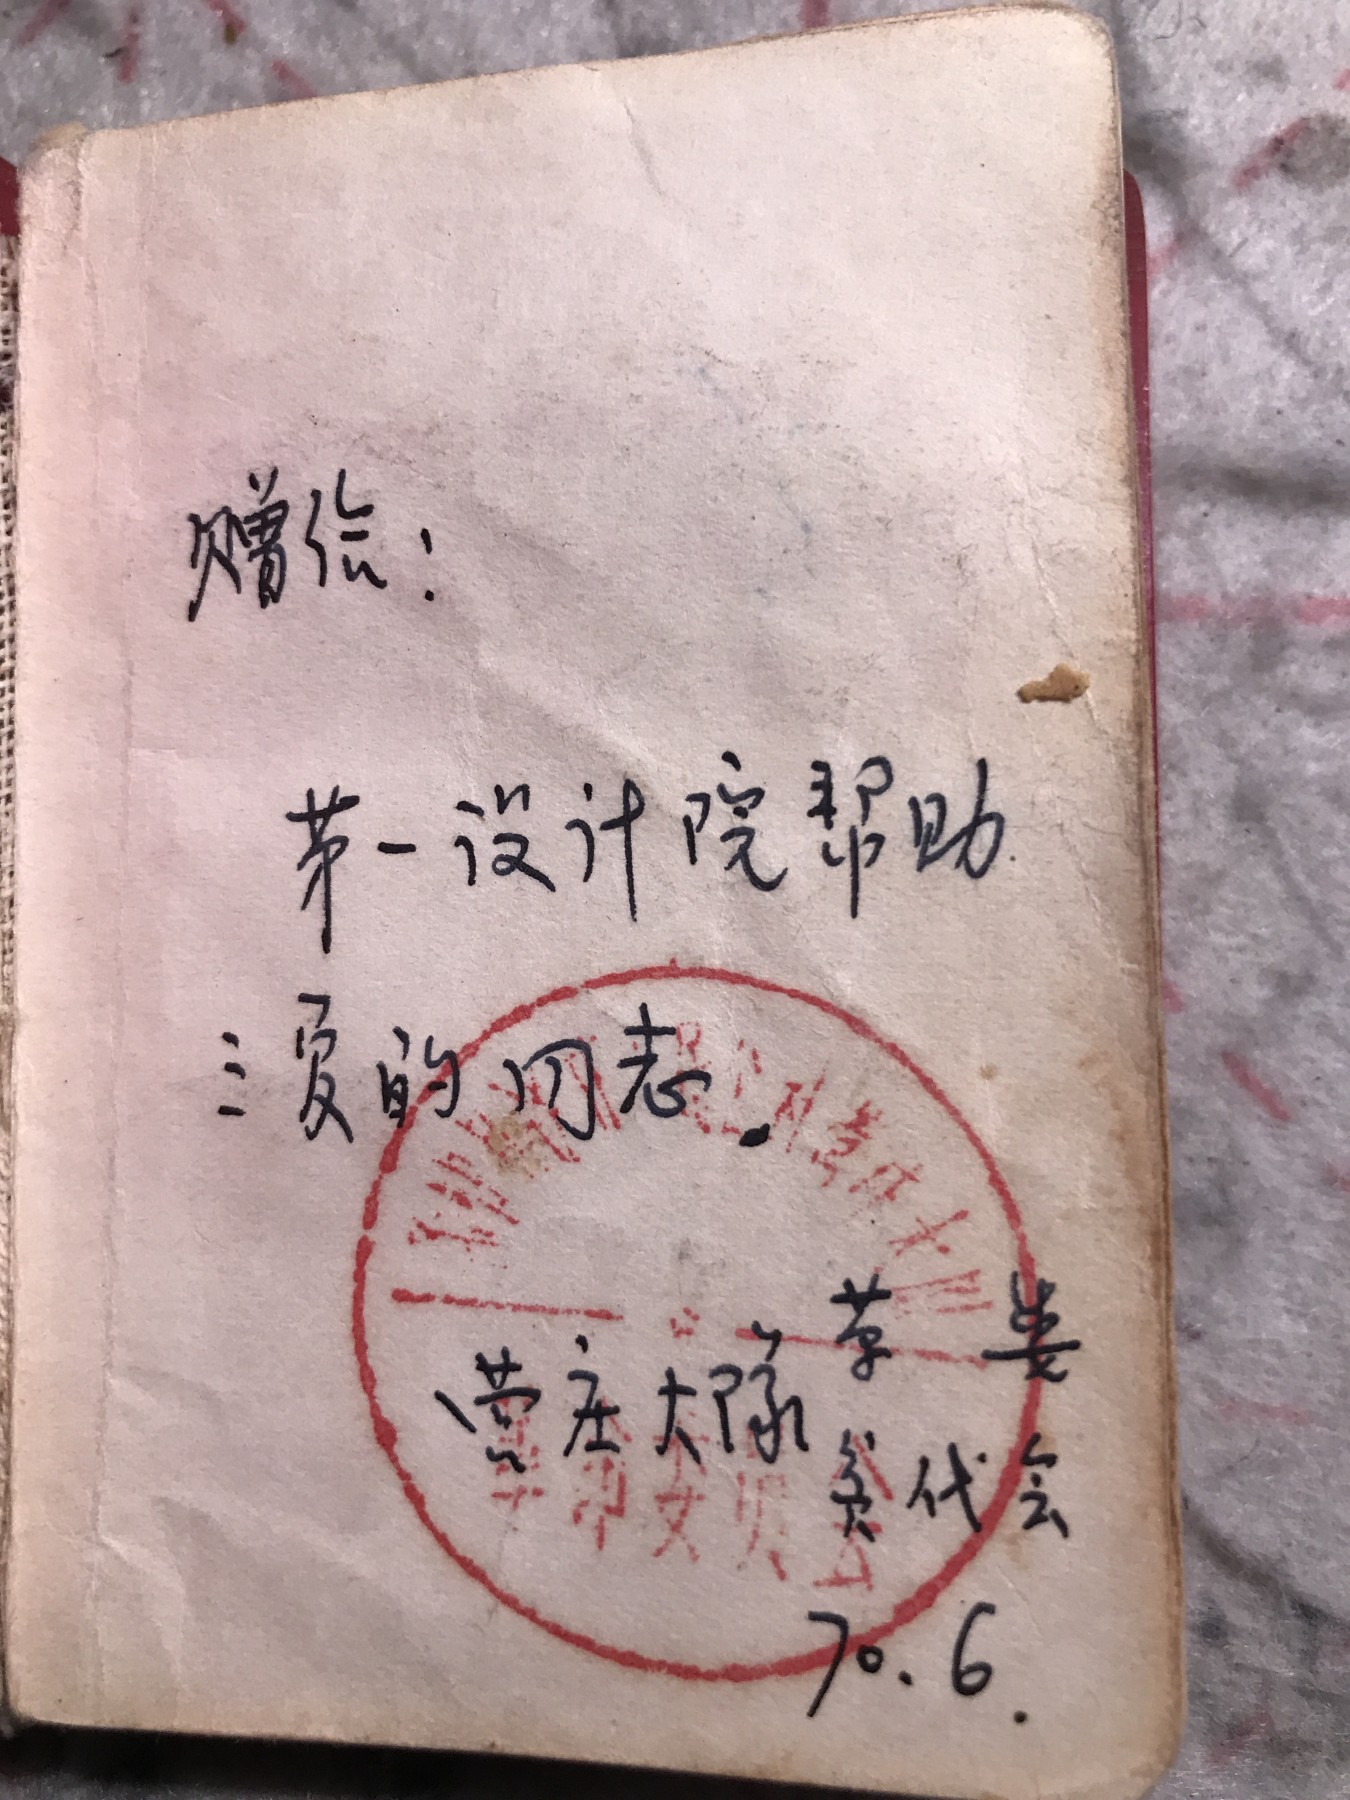 赠给：
第一设计院帮助
三夏的同志.
营庄大队
革 委
贫代会
70.6.
革命委员会